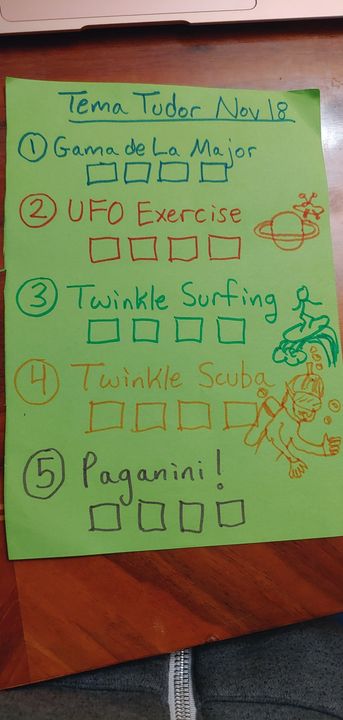 Tema Tudor Nov 18
1 Gama de La Major
2 UFO Exercise
3 Twinkle Surfing
4 Twinkle Scuba
5 Paganini!